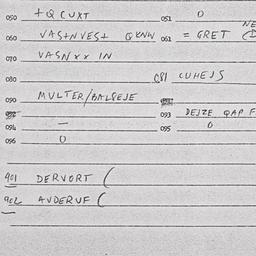 050 + Q CUXT 051 0
060 VASTNVEST QKNW 061 = GRET
070 VASNXX IN
080 081 CUHEJS
090 MULTER/BALSEJE
093 DEJZE QAP F
094 — 095 0
096 0
901 DERVORT (
902 AVDERUF (